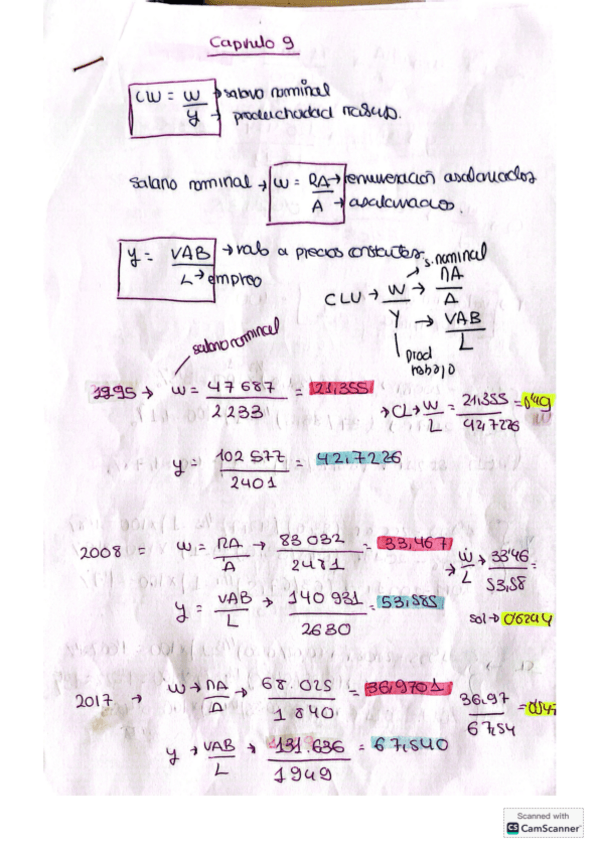 Capitulo 9
CW = W/y → salario nominal
→ productividad
salario nominal → W = RA/A → remuneración asalariados
→ asalariados.
y = VAB/L → vab a precios constantes
→ empleo
CLU → W/Y → s. nominal RA/A
→ VAB/L
prod trabajo
salario nominal
1995 → W = 47 687/2233 = 21,355
→ CL → W/L = 21,355/42,7226 = 0,49
y = 102 577/2401 = 42,7226
2008 = W = RA/A → 83 032/2481 = 33,467
→ W/L → 3346/53,58 =
y = VAB/L → 140 931/2630 = 53,585
sol →
2017 → W → RA/A → 68.025/1840 = 36,9701
36,97/67,54 =
y → VAB/L → 131.636/1949 = 67,540
Scanned with
CS CamScanner